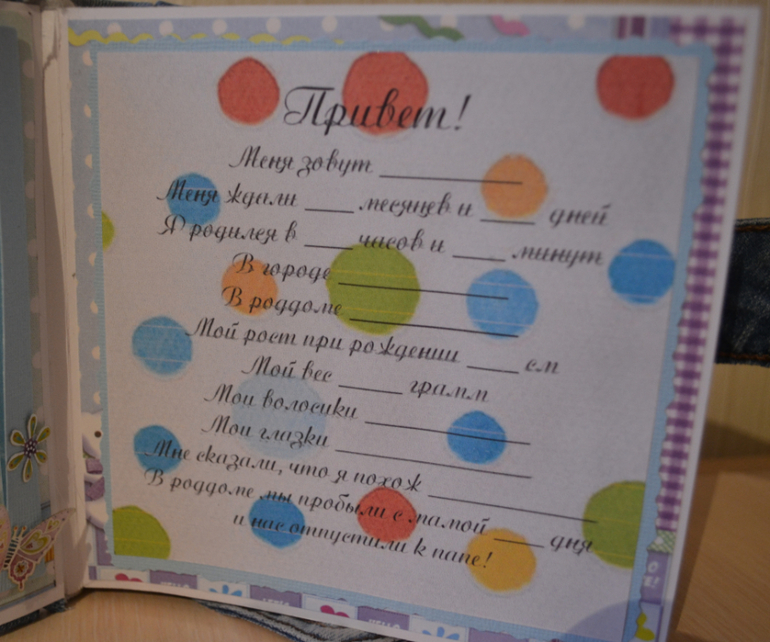 Привет!
Меня зовут ______
Меня ждали ___ месяцев и ___ дней
Я родился в ___ часов и ___ минут
В городе ______
В роддоме ______
Мой рост при рождении ___ см
Мой вес ___ грамм
Мои волосики ______
Мои глазки ______
Мне сказали, что я похож ______
В роддоме мы пробыли с мамой ___ дня
и нас отпустили к папе!